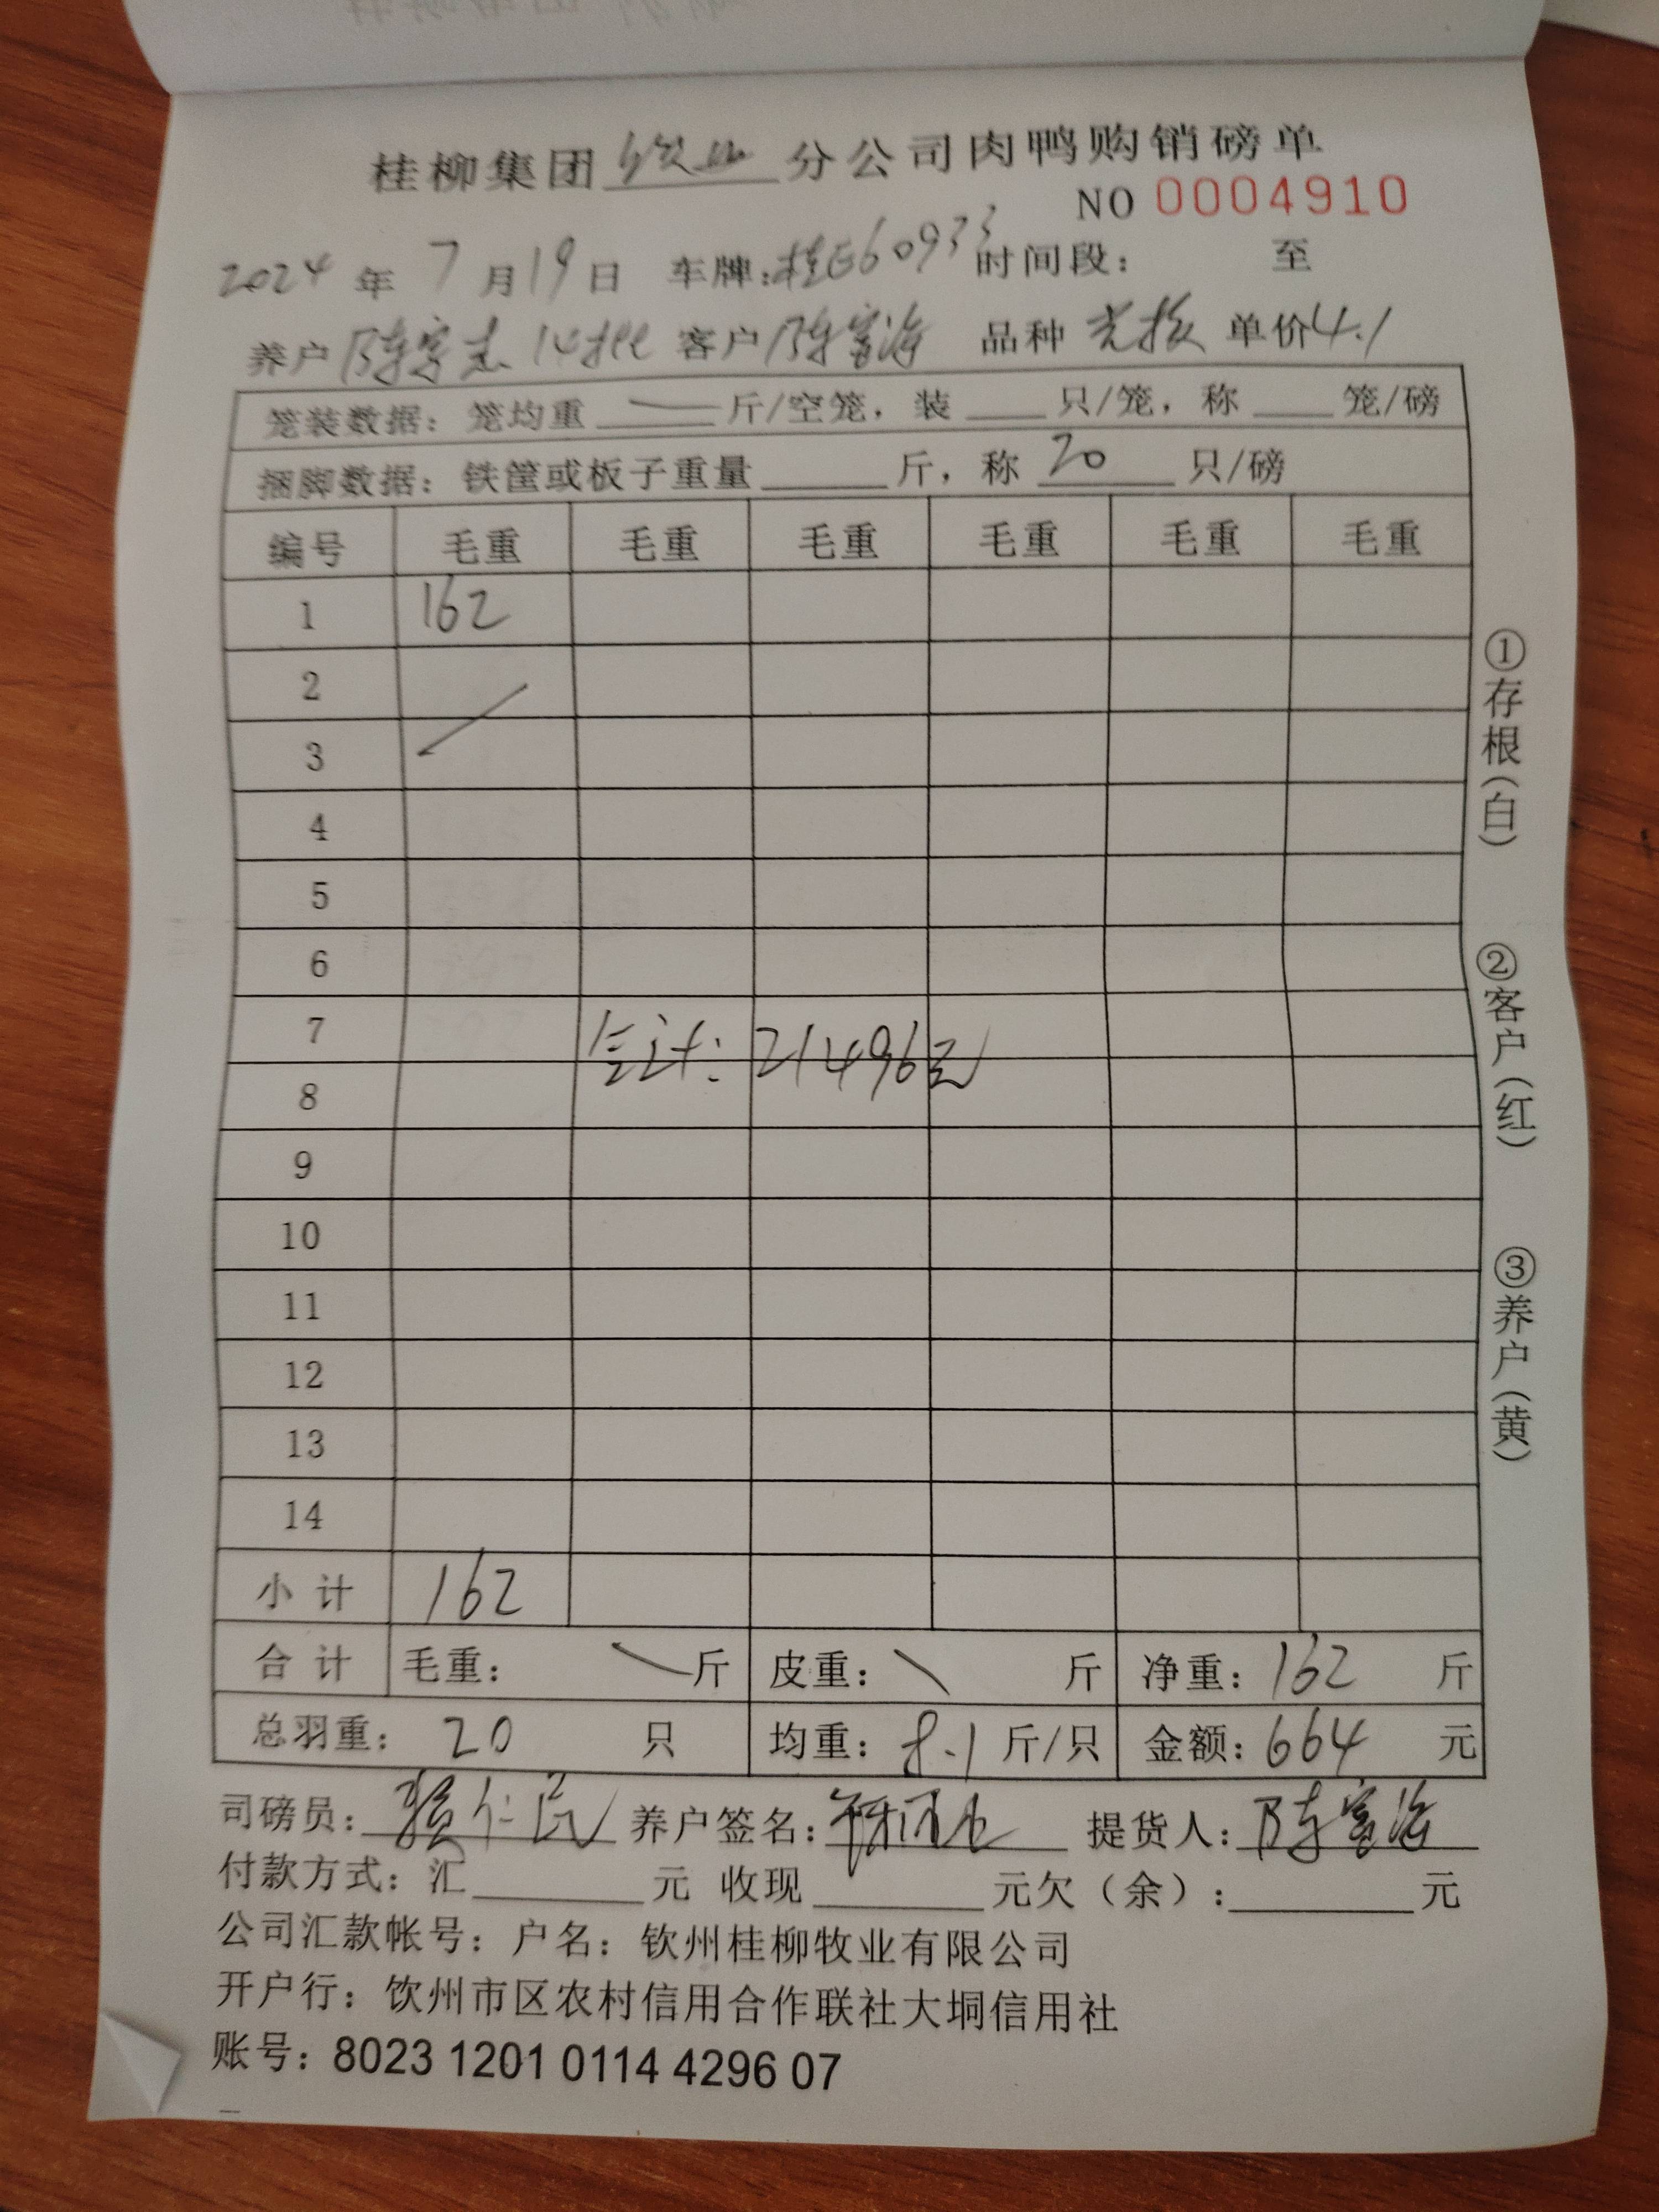 桂柳集团 牧业 分公司肉鸭购销磅单
NO 0004910
2024 年 7 月 19 日 车牌:桂E60933 时间段: 至
养户 陈 14批 客户 陈富海 品种 单价 4.1
笼装数据: 笼均重 斤/空笼, 装 只/笼, 称 笼/磅
捆脚数据: 铁筐或板子重量 斤, 称 20 只/磅
编号 毛重 毛重 毛重 毛重 毛重 毛重
1 162
2
3
4
5
6
7
合计: 21496元
8
9
10
11
12
13
14
小计 162
合计 毛重: 斤 皮重: 斤 净重: 162 斤
总羽重: 20 只 均重: 8.1 斤/只 金额: 664 元
司磅员: 养户签名: 提货人: 陈富海
付款方式: 汇 元 收现 元欠(余): 元
公司汇款帐号: 户名: 钦州桂柳牧业有限公司
开户行: 饮州市区农村信用合作联社大垌信用社
账号: 8023 1201 0114 4296 07
①存根(白)
②客户(红)
③养户(黄)